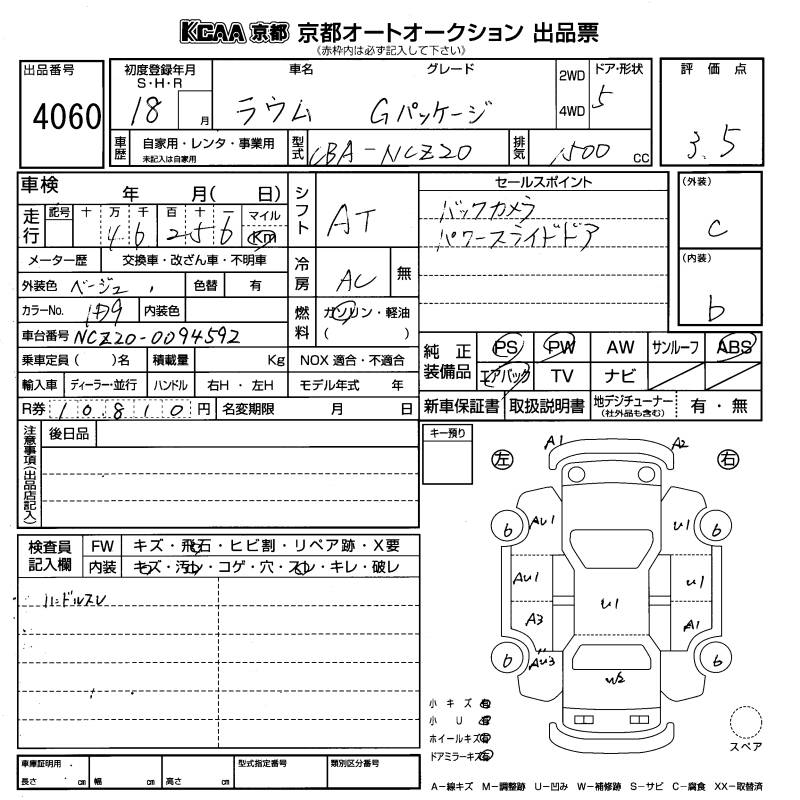 KCAA 京都 京都オートオークション 出品票
(赤枠内は必ず記入して下さい)
出品番号 4060
初度登録年月 S・H・R 18 月
車名 ラウム グレード Gパッケージ
2WD 4WD
ドア・形状 5
評価点 3.5
車歴 自家用・レンタ・事業用 未記入は自家用
型式 CBA-NCZ20
排気 1500 cc
車検 年 月( 日)
走行 記号 十 万 千 百 十 一 46256 マイル Km
シフト AT
セールスポイント
バックカメラ
パワースライドドア
(外装) C
(内装) b
メーター歴 交換車・改ざん車・不明車
外装色 ベージュ 色替 有
冷房 AC 無
カラーNo. 4D9 内装色
燃料 ガソリン・軽油 ( )
車台番号 NCZ20-0094592
乗車定員 ( )名 積載量 Kg NOX 適合・不適合
輸入車 ディーラー・並行 ハンドル 右H・左H モデル年式 年
R券 10,810 円 名変期限 月 日
純正装備品 PS PW AW サンルーフ ABS
エアバック TV ナビ
新車保証書 取扱説明書 地デジチューナー (社外品も含む) 有・無
注意事項(出品店記入)
後日品
キー預り
左 右
A1 A2
b AU1 U1 b
AU1 U1
U1
A3 A1
b AU3 b
W2
検査員記入欄 FW キズ・飛石・ヒビ割・リペア跡・X要
内装 キズ・汚レ・コゲ・穴・スレ・キレ・破レ
ハンドルスレ
小キズ 有
小U 有
ホイールキズ 有
ドアミラーキズ 有
スペア
車庫証明用 長さ cm 幅 cm 高さ cm 型式指定番号 類別区分番号
A-線キズ M-調整跡 U-凹み W-補修跡 S-サビ C-腐食 XX-取替済